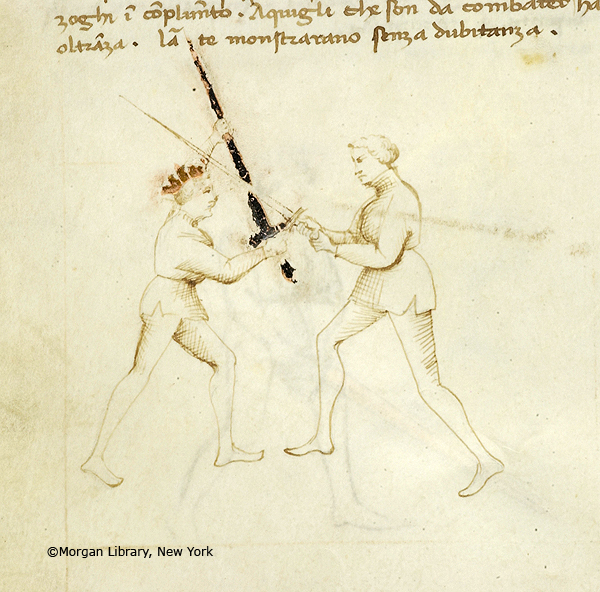 zoghi i co̅plim̅to. Aquigli che son da combater ha
oltra̅za. la̅ te monstrarano senza dubitanza.
©Morgan Library, New York